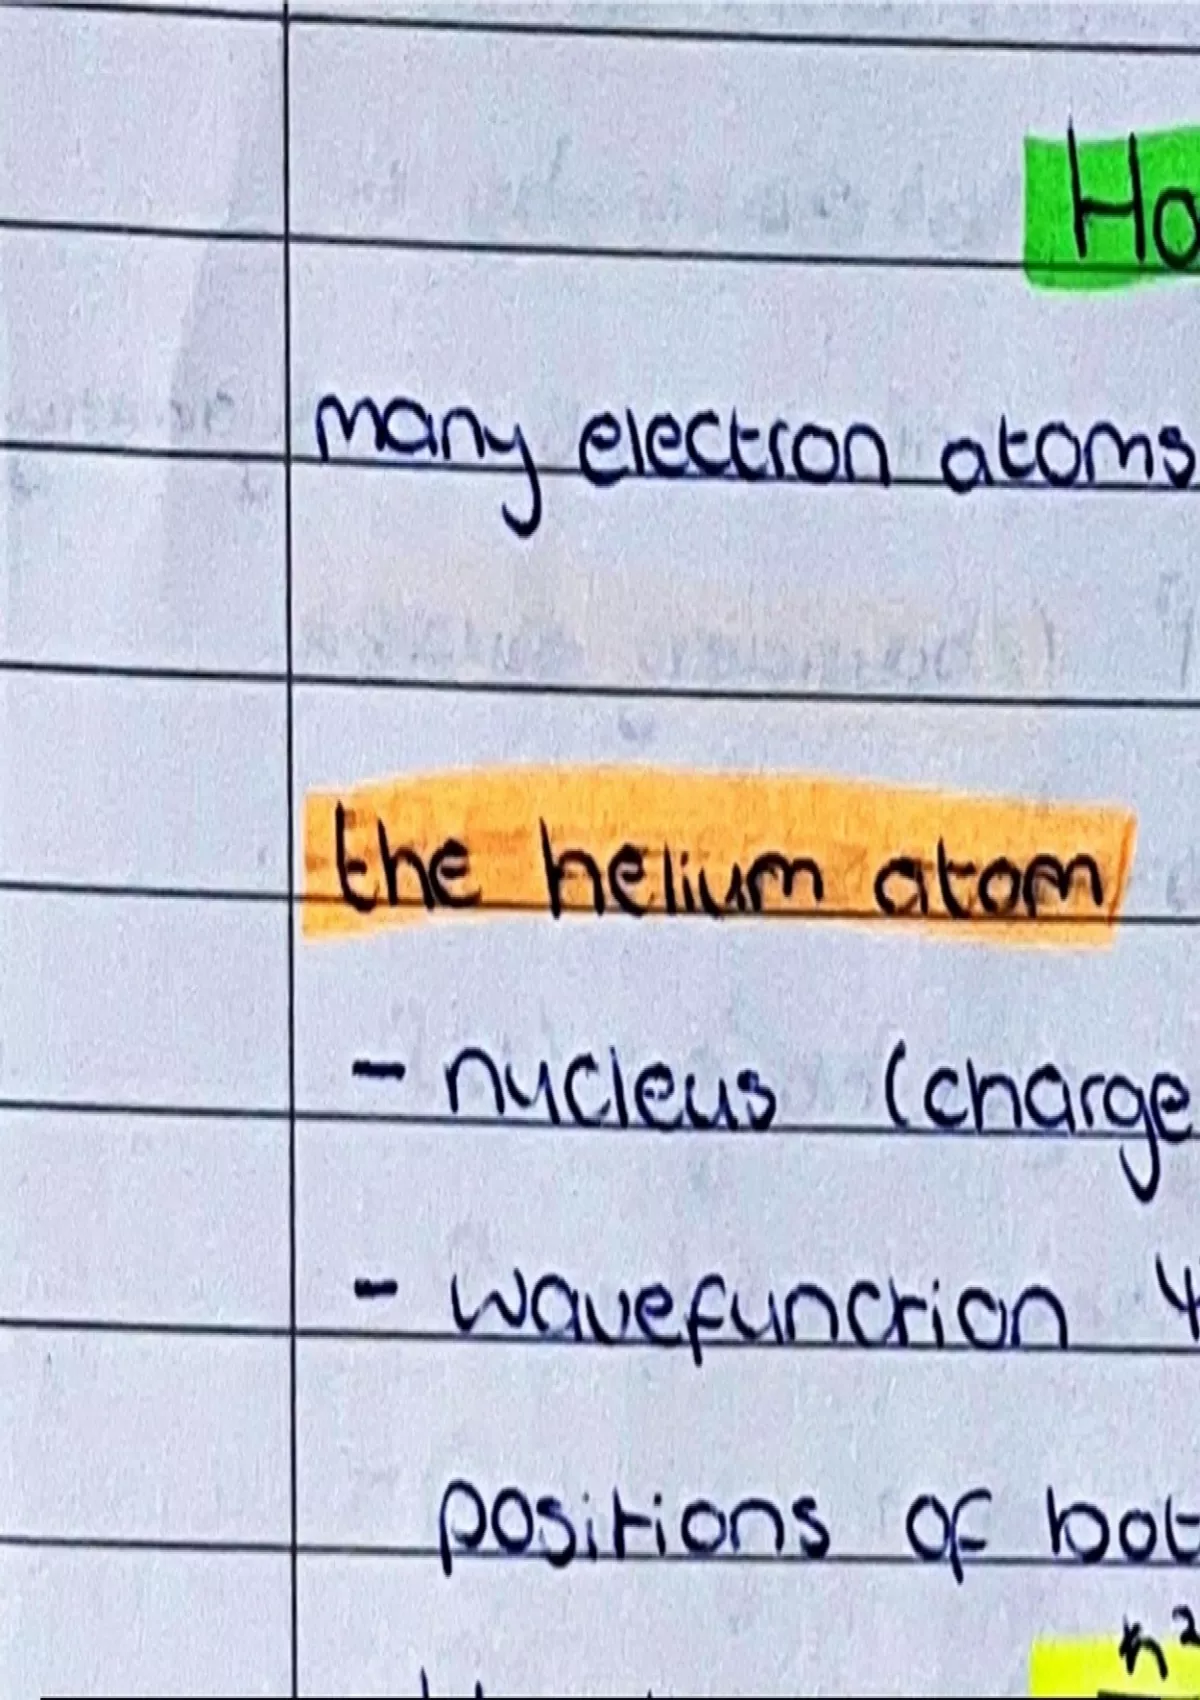 Ha
many electron atoms
the helium atom
- nucleus (charge
- wavefunction ψ
positions of bot
ħ²